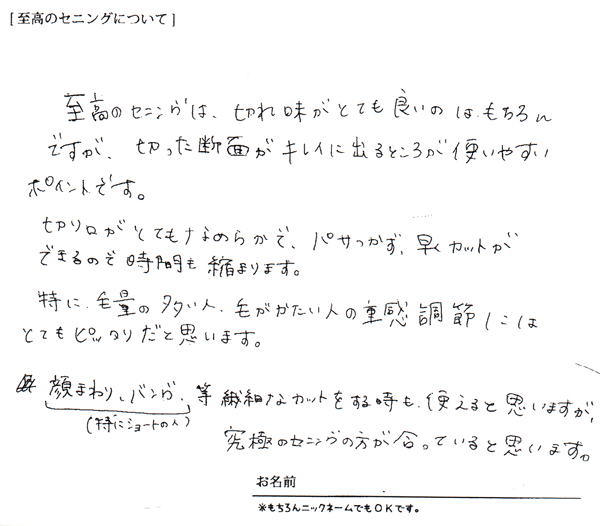 [至高のセニングについて]
至高のセニングは、切れ味がとても良いのはもちろん
ですが、切った断面がキレイに出るところが使いやすい
ポイントです。
切り口がとてもなめらかで、パサつかず、早くカットが
できるので時間も縮まります。
特に、毛量の多い人、毛がかたい人の重感調節には
とてもピッタリだと思います。
顔まわり、バング、等繊細なカットをする時も、使えると思いますが、
(特にショートの人)
究極のセニングの方が合っていると思います。
お名前
※もちろんニックネームでもOKです。